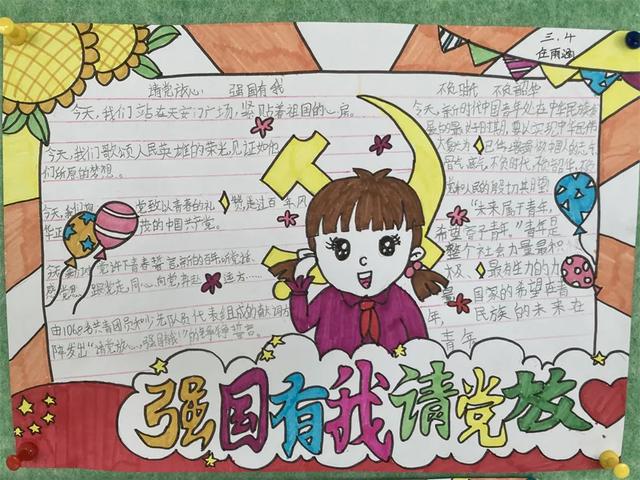 三.4
任雨涵
请党放心 强国有我
今天,我们站在天安门广场,紧贴着祖国的心房。
今天,我们歌颂人民英雄的荣光,见证如他
们所愿的梦想。
党致以青春的礼赞 走过百年风
华正茂的中国共产党。
党许下青春誓言 新的百年 听党话、
感党恩、跟党走,同心向党,奔赴远方……
由1068名共青团员和少先队员代表组成的献词方
阵发出“请党放心,强国有我”的 誓言。
不负时代 不负韶华
今天,新时代中国青年处在中华民族
展的最好时期,
不负时代,不负韶华,不
党和人民的殷切期望
“未来属于青年,
希望寄予青年”青年是
整个社会力量最积
极、最有生力的力
量,国家的希望在青
年,民族的未来在
青年
强国有我请党放